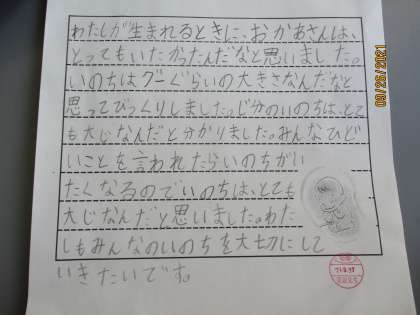 わたしが生まれるときに、おかあさんは、
とってもいたかったんだなと思いました。
いのちはグーぐらいの大きさなんだなと
思ってびっくりしました。じ分のいのちは、とて
も大じなんだと分かりました。みんなひど
いことを言われたらいのちがい
たくなるのでいのちは、とても
大じなんだと思いました。わた
しもみんなのいのちを大切にして
いきたいです。
09/26/2021